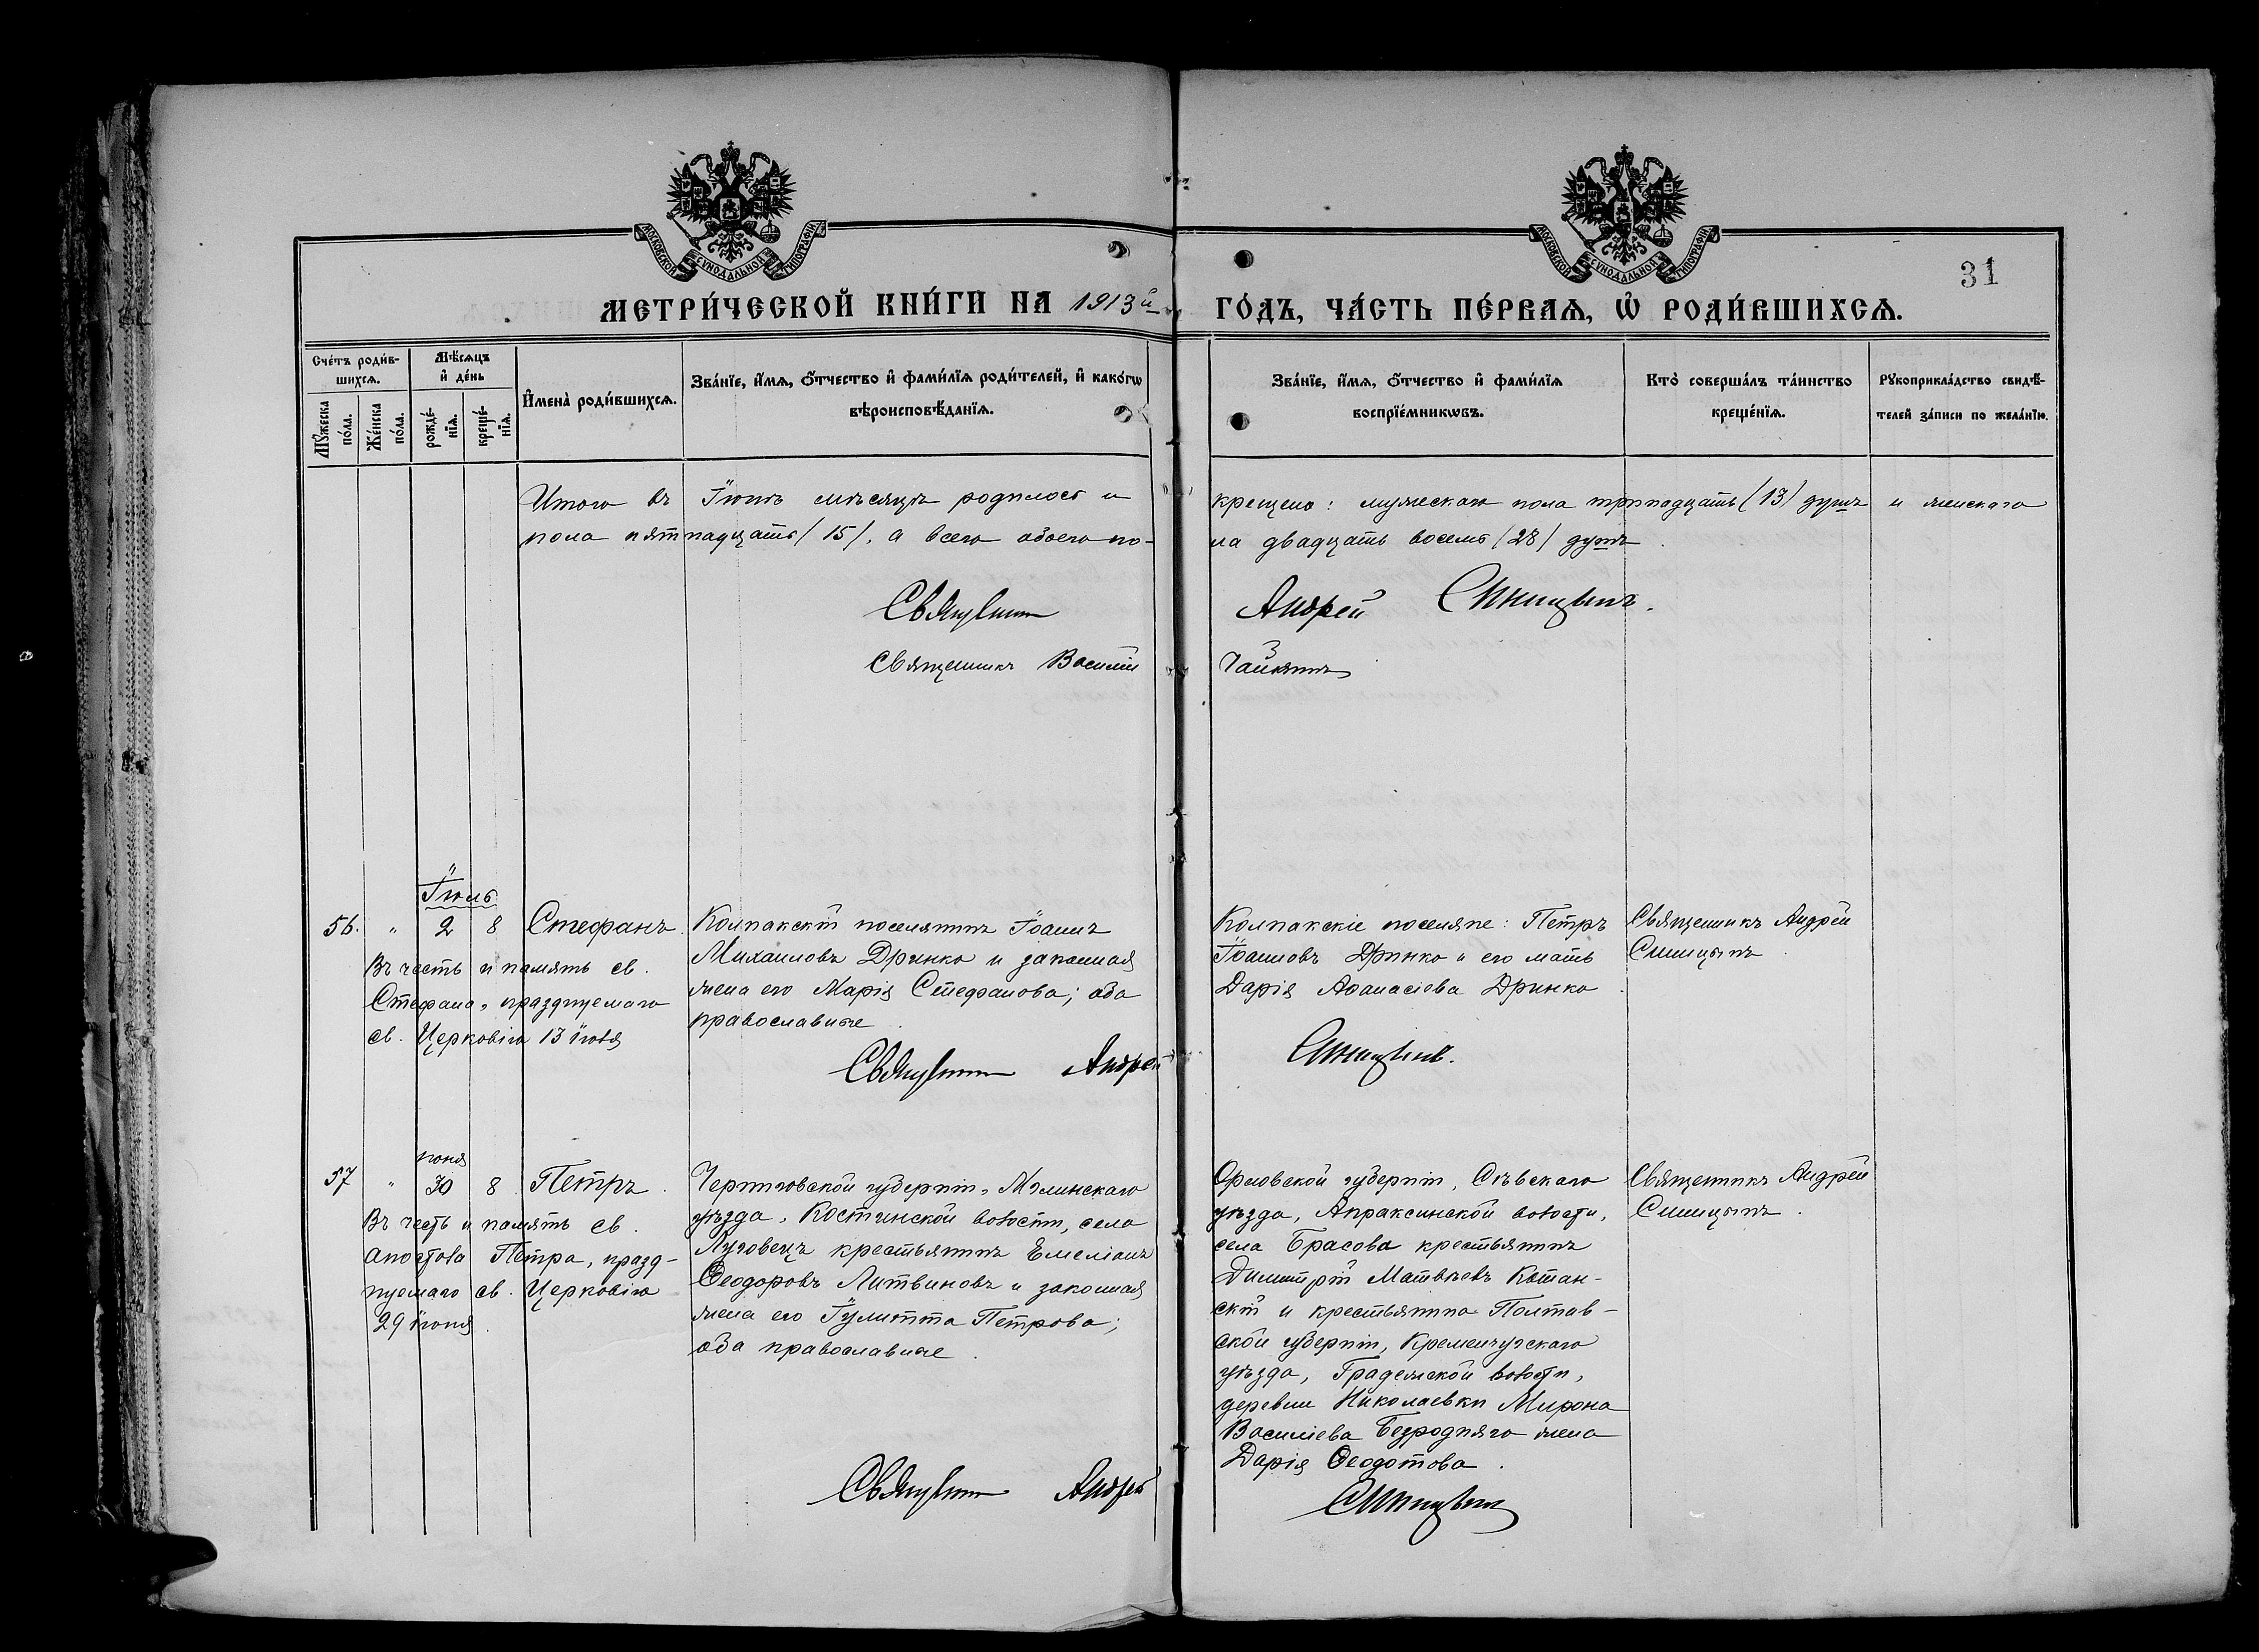 МОСКОВСКОЙ СѴНОДАЛЬНОЙ ТИПОГРАФІИ
МОСКОВСКОЙ СѴНОДАЛЬНОЙ ТИПОГРАФІИ
31
МЕТРИ́ЧЕСКОЙ КНИ́ГИ НА 1913й ГО́ДЪ, ЧА́СТЬ ПЕ́РВАѦ, Ѡ҆ РОДИ́ВШИХСѦ.
Сче́тъ роди́в-
шихсѧ.
Мꙋ́жеска по́ла.
Же́нска по́ла.
Мѣ́сѧцъ
и҆ де́нь
рожде́-
нїѧ.
креще́-
нїѧ.
И҆мена̀ роди́вшихсѧ.
Зва́нїе, и҆́мѧ, ѻ҆́тчество и҆ фами́лїѧ роди́телей, и҆ како́гѡ
вѣроисповѣ́данїѧ.
Зва́нїе, и҆́мѧ, ѻ҆́тчество и҆ фами́лїѧ
воспрїе́мникѡвъ.
Кто̀ соверша́лъ та́инство
креще́нїѧ.
Рꙋкоприкла́дство свидѣ́-
телей за́писи по жела́нїю.
Итого въ Іюнѣ мѣсяцѣ родилось и крещено: мужескаго пола тринадцать (13) душъ и женскаго
пола пятнадцать (15), а всего обоего по- ла двадцать восемь (28) душъ.
Священникъ Андрей Синицынъ.
Священникъ Василій
Іюль
56. " 2 8 Стефанъ.
Въ честь и память св.
Стефана, празднуемаго
св. Церковію 13 іюля
Колпакскій поселянинъ Іоаннъ
Михаиловъ Дринко и законная
жена его Марія Стефанова; оба
православные.
Колпакскіе поселяне: Петръ
Іоанновъ Дринко и его мать
Дарія Аѳанасіева Дринко.
Священникъ Андрей
Синицынъ.
Священникъ Андрей Синицынъ.
іюня
57 " 30 8 Петръ.
Въ честь и память св.
апостола Петра, празд-
нуемаго св. Церковію
29 іюня.
Черниговской губерніи, Мглинскаго
уѣзда, Костинской волости, села
Луговецъ крестьянинъ Емеліанъ
Ѳеодоровъ Литвиновъ и законная
жена его Іулитта Петрова;
оба православные.
Орловской губерніи, Сѣвскаго
уѣзда, Апраксинской волости,
села Брасова крестьянинъ
Димитрій Матвѣевъ Котан-
скій и крестьянина Полтав-
ской губерніи, Кременчугскаго
уѣзда, Градежской волости,
деревни Николаевки Мирона
Василіева Безродняго жена
Дарія Ѳеодотова.
Священникъ Андрей
Синицынъ.
Священникъ Андрей Синицынъ